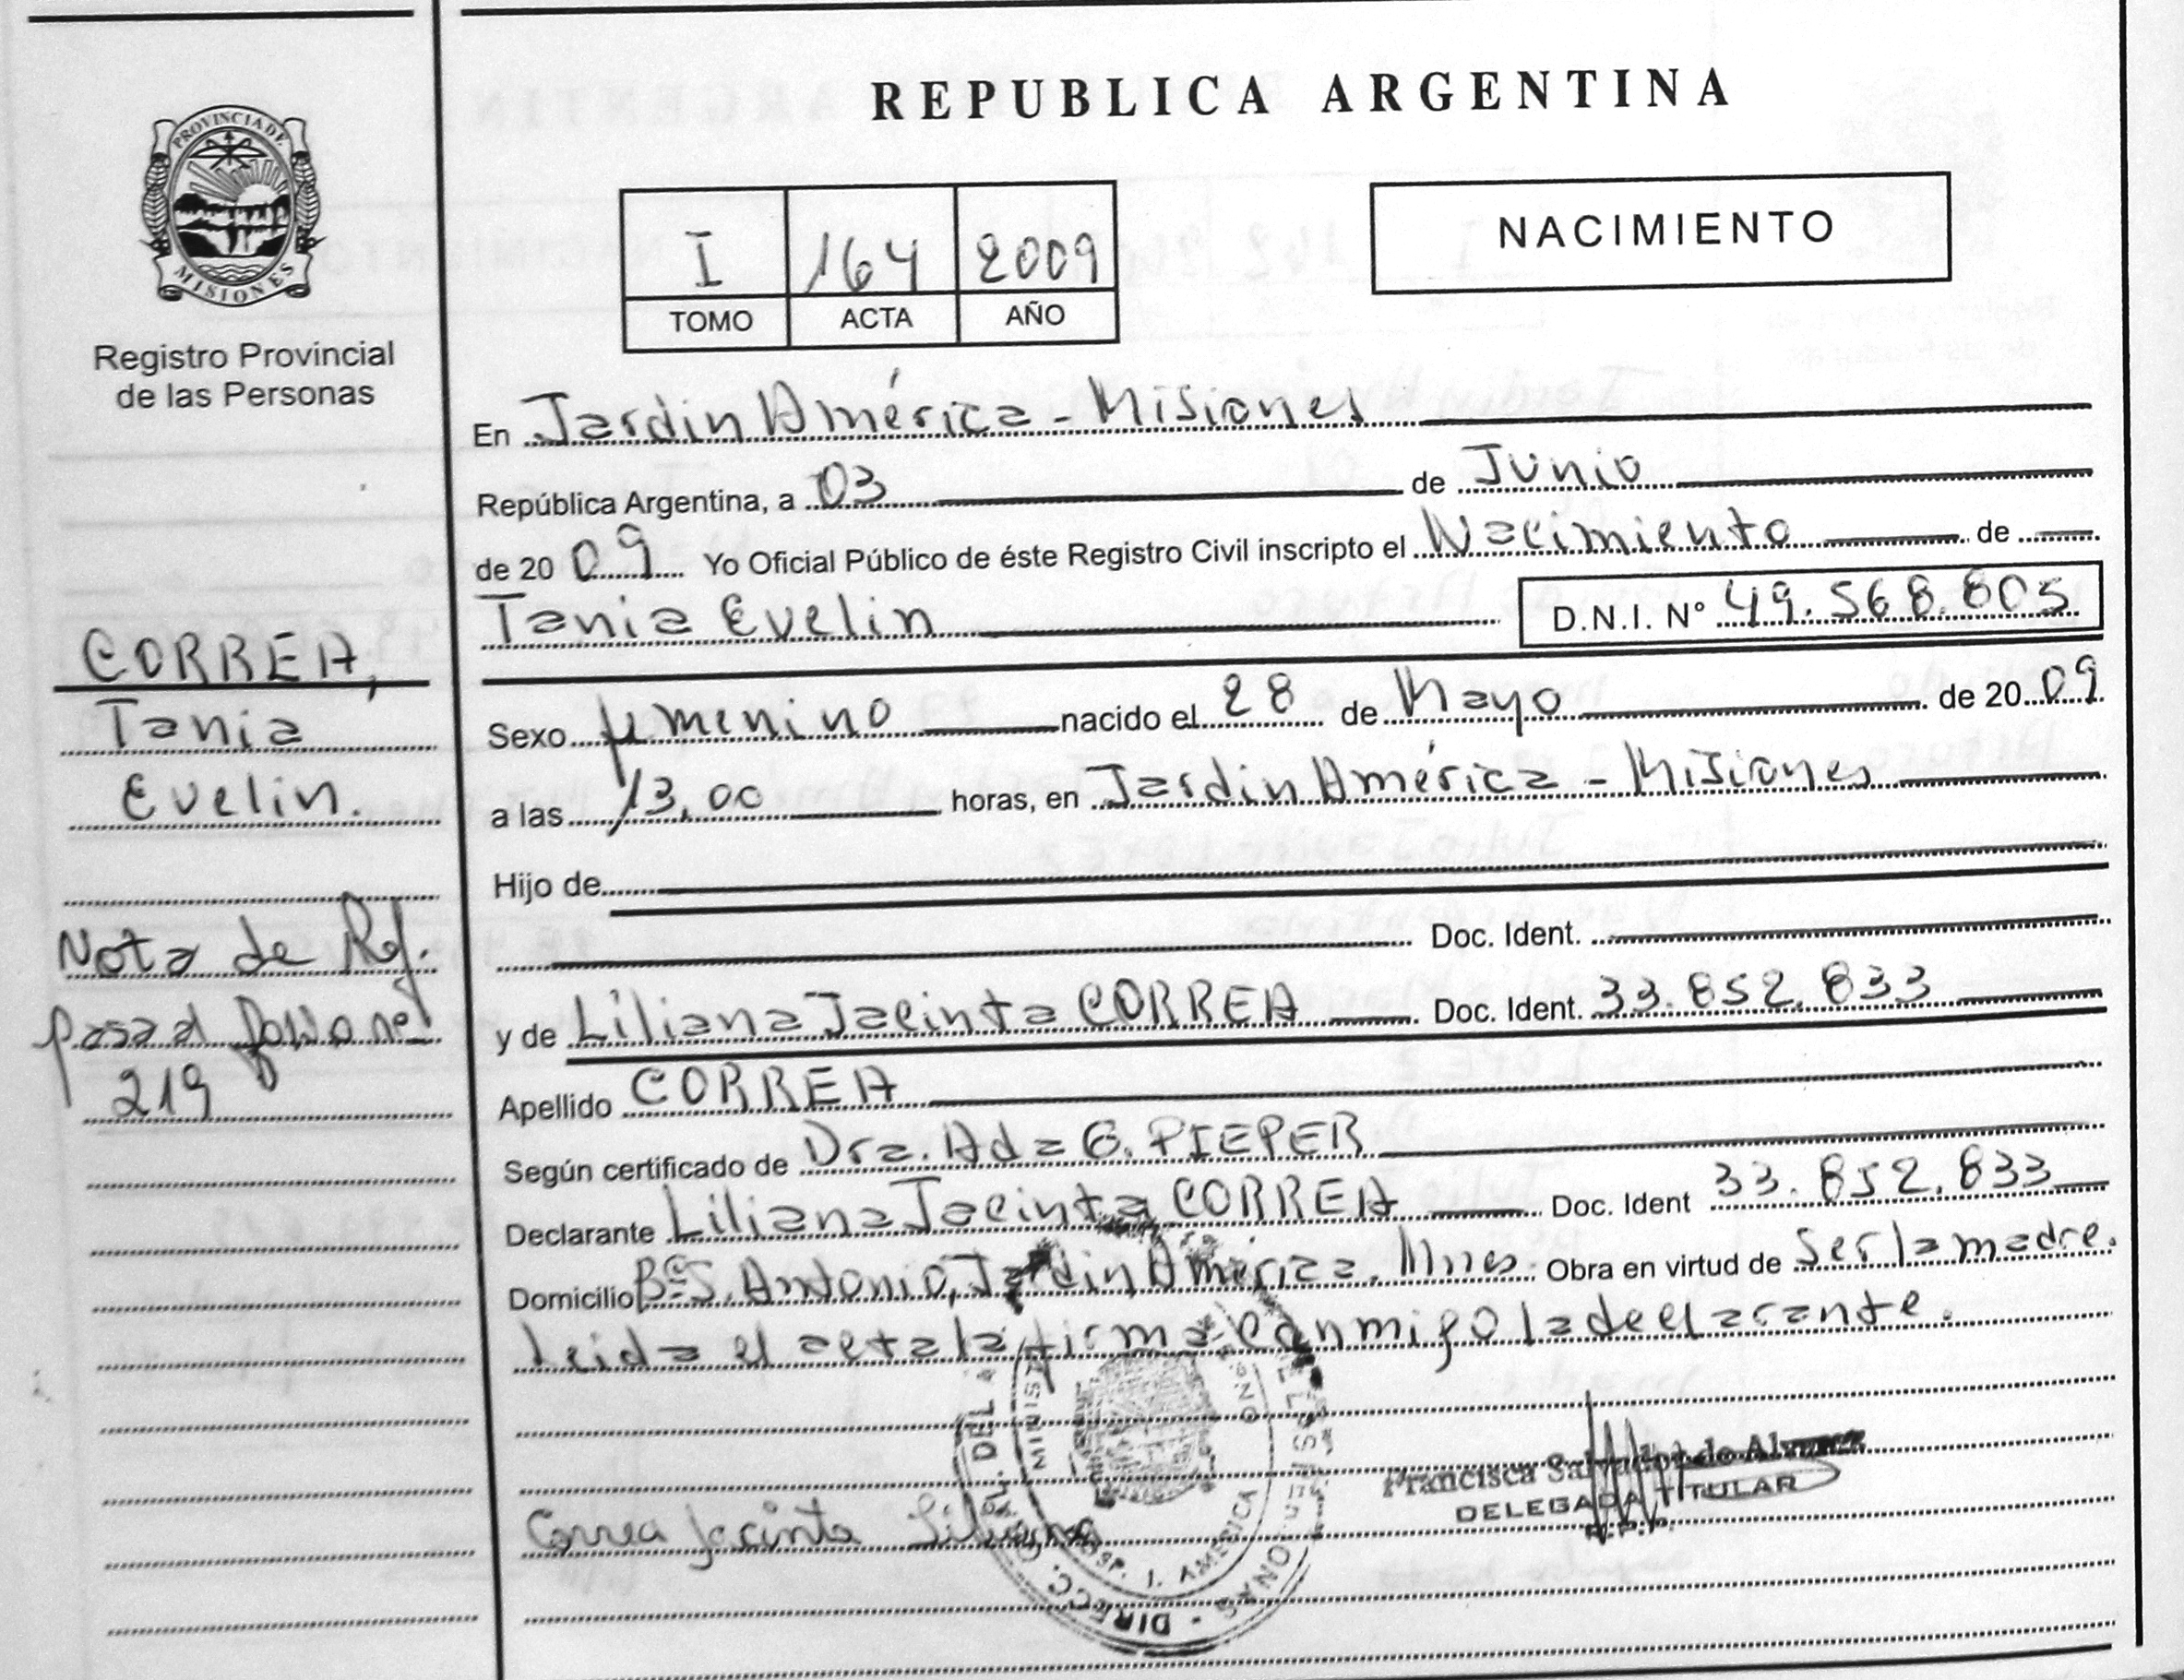 REPUBLICA ARGENTINA
PROVINCIA DE
MISIONES
Registro Provincial
de las Personas
I 164 2009
TOMO ACTA AÑO
NACIMIENTO
En Jardin América - Misiones
República Argentina, a 03 de Junio
de 20 09 Yo Oficial Público de éste Registro Civil inscripto el Nacimiento de
Tania Evelin D.N.I. N° 49.568.805
CORREA,
Tania
Evelin.
Sexo femenino nacido el 28 de Mayo de 20 09
a las 13,00 horas, en Jardin América - Misiones
Hijo de
Doc. Ident.
Nota de Ref.
Pasa al folio nº
219
y de Liliana Jacinta CORREA Doc. Ident. 33.852.833
Apellido CORREA
Según certificado de Dra. Ada G. PIEPER
Declarante Liliana Jacinta CORREA Doc. Ident 33.852.833
Domicilio Bº S. Antonio, Jardin América. Mnes. Obra en virtud de Ser la madre.
Leida el acta la firma conmigo la declarante.
Correa Jacinta Liliana
Francisca Salvador de Alvarez
DELEGADA TITULAR
R.P.P.
DIREC. DEL
AMERICA